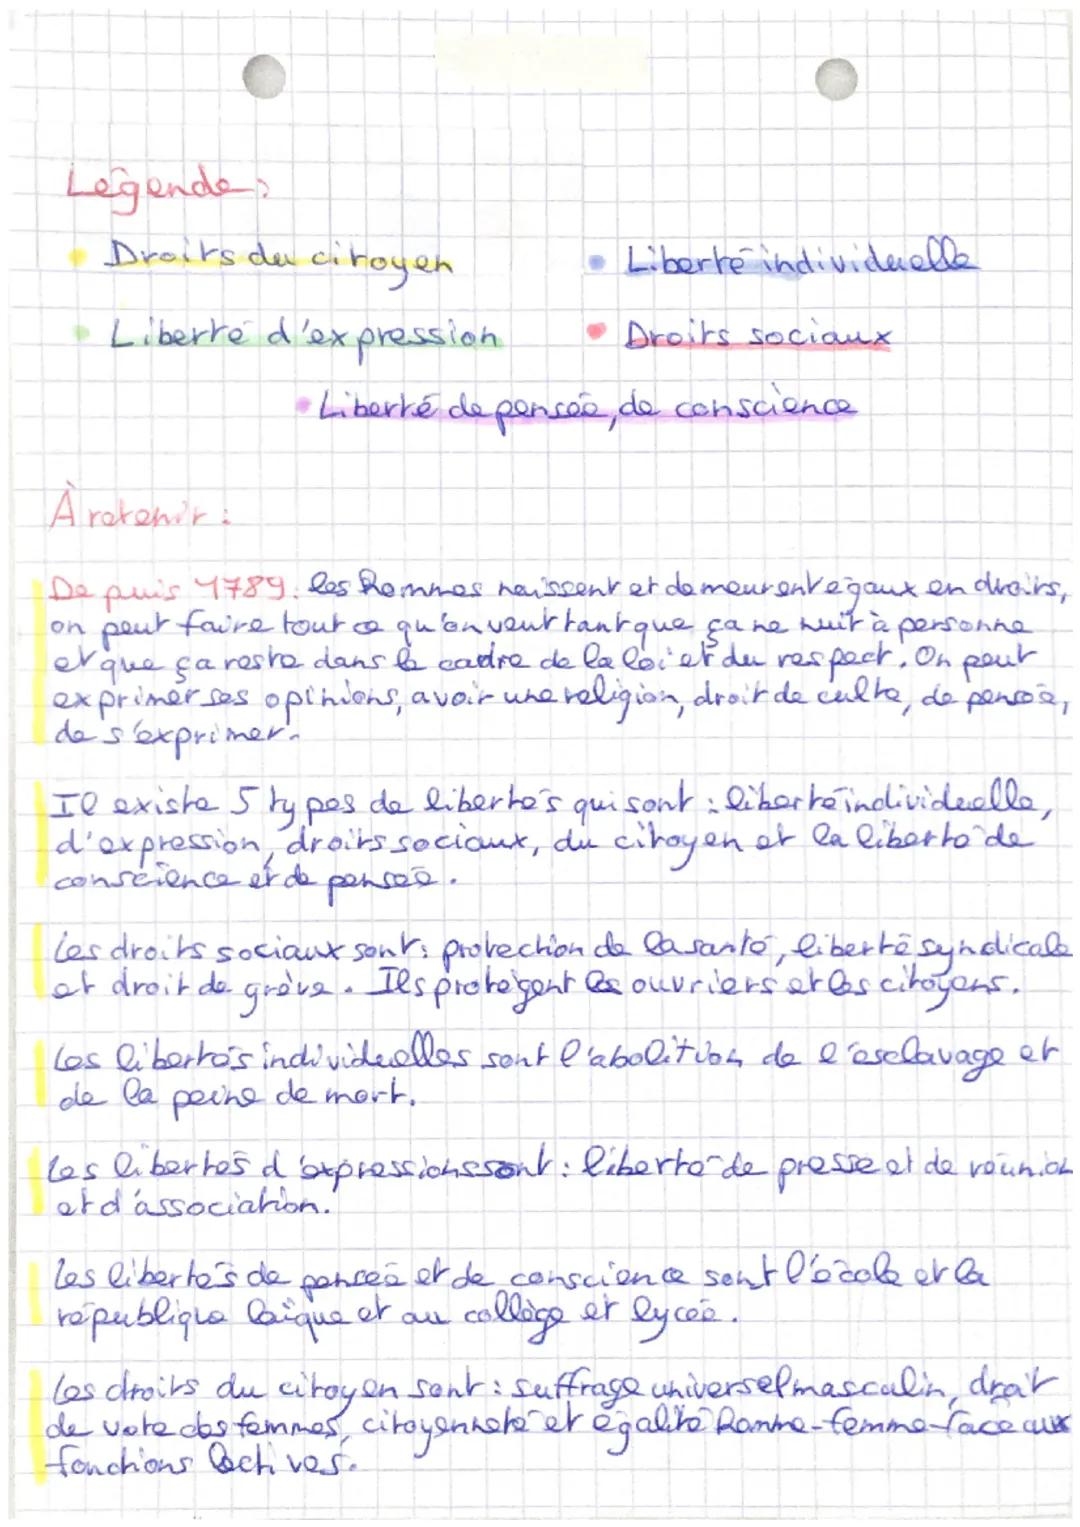 Légende :
• Droits du citoyen • Liberté individuelle
• Liberté d'expression • Droits sociaux
• Liberté de pensée, de conscience
À retenir :
Depuis 1789 : les hommes naissent et demeurent égaux en droits,
on peut faire tout ce qu'on veut tant que ça ne nuit à personne
et que ça reste dans le cadre de la loi et du respect. On peut
exprimer ses opinions, avoir une religion, droit de culte, de pensée,
de s'exprimer.
Il existe 5 types de libertés qui sont : liberté individuelle,
d'expression, droits sociaux, du citoyen et la liberté de
conscience et de pensée.
Les droits sociaux sont : protection de la santé, liberté syndicale
et droit de grève. Ils protègent les ouvriers et les citoyens.
Les libertés individuelles sont l'abolition de l'esclavage et
de la peine de mort.
Les libertés d'expressions sont : liberté de presse et de réunion
et d'association.
Les libertés de pensée et de conscience sont l'école et la
république laïque et au collège et lycée.
Les droits du citoyen sont : suffrage universel masculin, droit
de vote des femmes, citoyenneté et égalité homme-femme face aux
fonctions lectives.